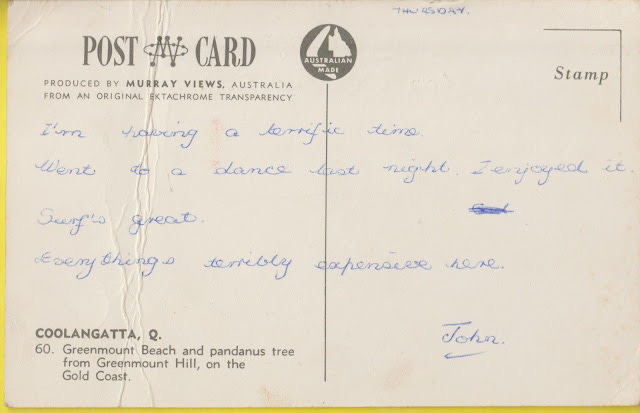 THURSDAY.
POST CARD
AUSTRALIAN
MADE
Stamp
PRODUCED BY MURRAY VIEWS, AUSTRALIA
FROM AN ORIGINAL EKTACHROME TRANSPARENCY
I'm having a terrific time.
Went to a dance last night. I enjoyed it.
Surf's great.
Everything's terribly expensive here.
John.
COOLANGATTA, Q.
60. Greenmount Beach and pandanus tree
from Greenmount Hill, on the
Gold Coast.